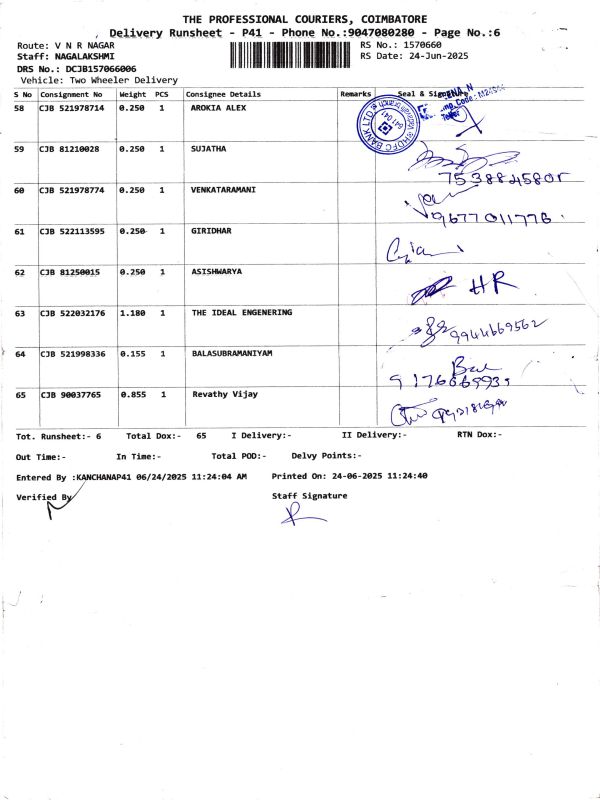 THE PROFESSIONAL COURIERS, COIMBATORE
Delivery Runsheet - P41 - Phone No.:9047080280 - Page No.:6
Route: V N R NAGAR RS No.: 1570660
Staff: NAGALAKSHMI RS Date: 24-Jun-2025
DRS No.: DCJB157066006
Vehicle: Two Wheeler Delivery
S No Consignment No Weight PCS Consignee Details Remarks Seal & Signature
58 CJB 521978714 0.250 1 AROKIA ALEX
HDFC BANK LTD
641 041
Teller
59 CJB 81210028 0.250 1 SUJATHA
7538845801
60 CJB 521978774 0.250 1 VENKATARAMANI
9677011776
61 CJB 522113595 0.250 1 GIRIDHAR
62 CJB 81250015 0.250 1 ASISHWARYA
HR
63 CJB 522032176 1.180 1 THE IDEAL ENGENERING
9944669562
64 CJB 521998336 0.155 1 BALASUBRAMANIYAM
65 CJB 90037765 0.855 1 Revathy Vijay
Tot. Runsheet:- 6 Total Dox:- 65 I Delivery:- II Delivery:- RTN Dox:-
Out Time:- In Time:- Total POD:- Delvy Points:-
Entered By :KANCHANAP41 06/24/2025 11:24:04 AM Printed On: 24-06-2025 11:24:40
Verified By Staff Signature